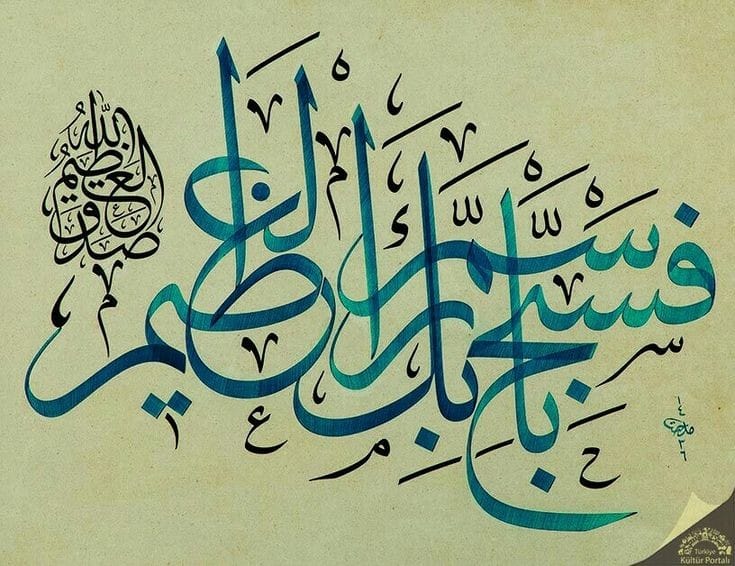 فَسَبِّحْ بِاسْمِ رَبِّكَ الْعَظِيمِ
صدق الله العظيم
١٤
٢٦
Türkiye
Kültür Portalı